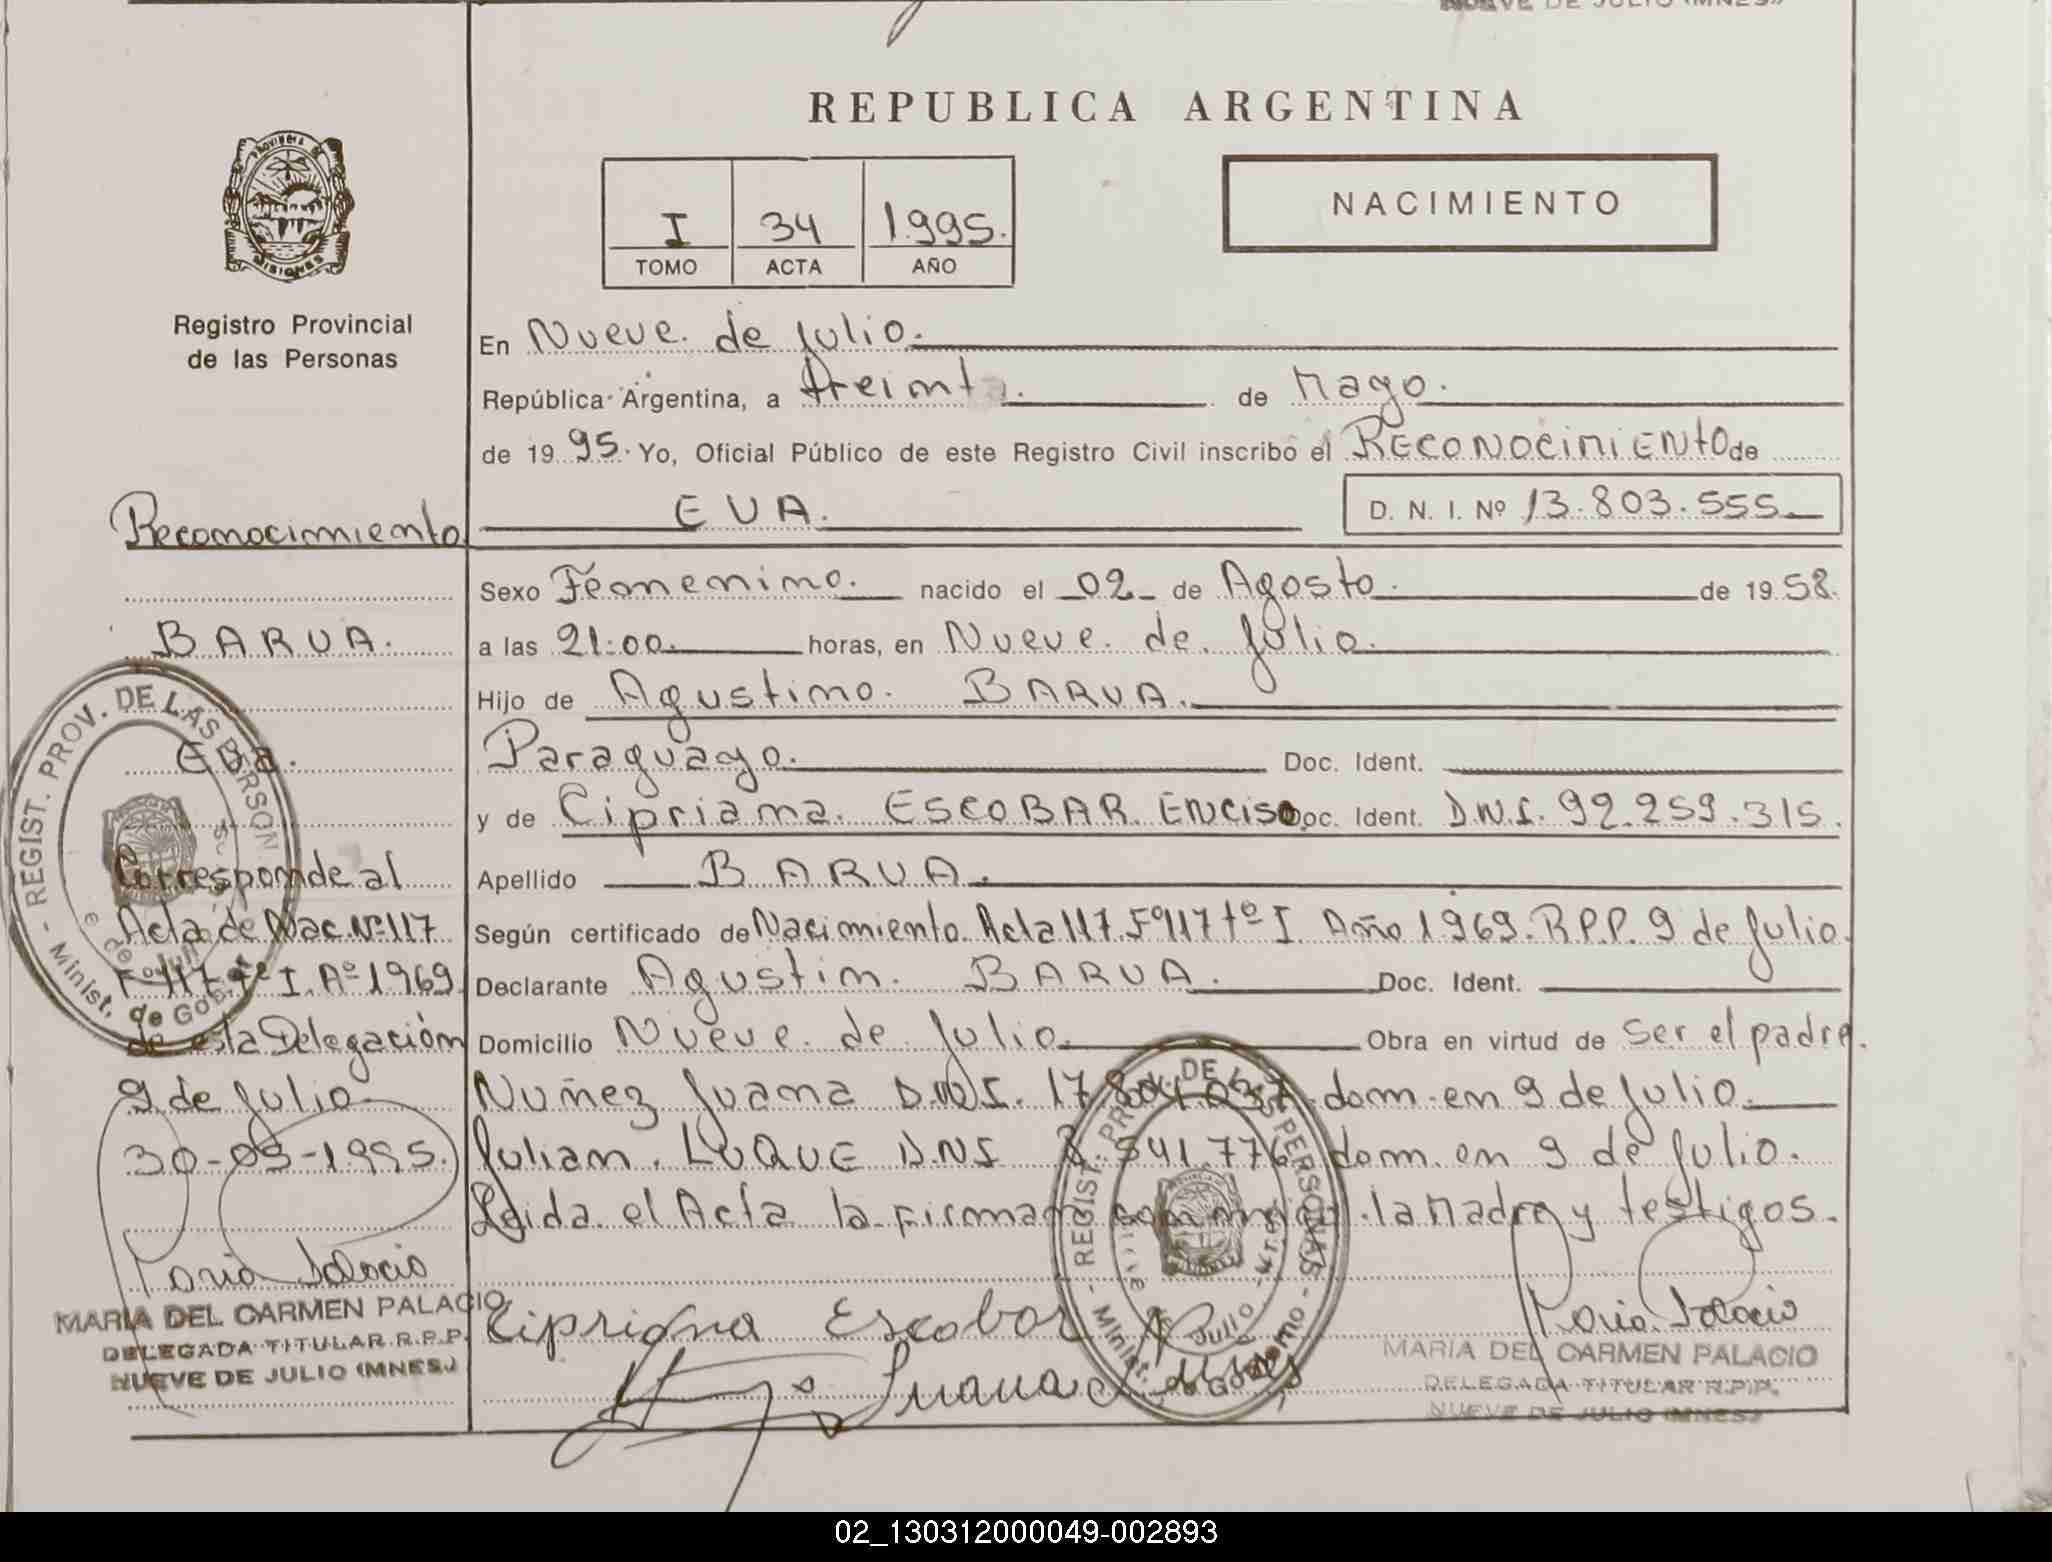 NUEVE DE JULIO (MNES.)
REPUBLICA ARGENTINA
PROVINCIA DE
MISIONES
I 34 1995.
TOMO ACTA AÑO
NACIMIENTO
Registro Provincial
de las Personas
En Nueve de Julio.
República Argentina, a treinta. de Mayo.
de 19 95. Yo, Oficial Público de este Registro Civil inscribo el RECONOCIMIENTO de
EVA. D. N. I. Nº 13.803.555
Reconocimiento
Sexo Femenino. nacido el 02 de Agosto. de 19 58.
BARUA. a las 21:00. horas, en Nueve de Julio.
Hijo de Agustino. BARUA.
Eva. Paraguayo. Doc. Ident.
y de Cipriana. ESCOBAR ENCISO Doc. Ident. D.N.I. 92.259.315.
Corresponde al Apellido BARUA.
Acta de Nac. Nº 117 Según certificado de Nacimiento. Acta 117. Fº 117 tº I Año 1969. R.P.P. 9 de Julio.
Fº 117 Tº I. Aº 1969 Declarante Agustin. BARUA. Doc. Ident.
de esta Delegación Domicilio Nueve de Julio. Obra en virtud de ser el padre.
9 de Julio Nuñez Juana D.N.I. dom. en 9 de Julio.
30-05-1995. Julian. LUQUE D.N.I. 541.776 dom. en 9 de Julio.
Leida el Acta la firman la Madre y testigos.
Maria Palacio
MARIA DEL CARMEN PALACIO
DELEGADA TITULAR R.P.P.
NUEVE DE JULIO (MNES.)
Cipriana Escobar
Juana
Maria Palacio
MARIA DEL CARMEN PALACIO
DELEGADA TITULAR R.P.P.
NUEVE DE JULIO (MNES.)
- REGIST. PROV. DE LAS PERSONAS - Minist. de Gobierno
- REGIST. PROV. DE LAS PERSONAS - Minist. de Gobierno
02_130312000049-002893